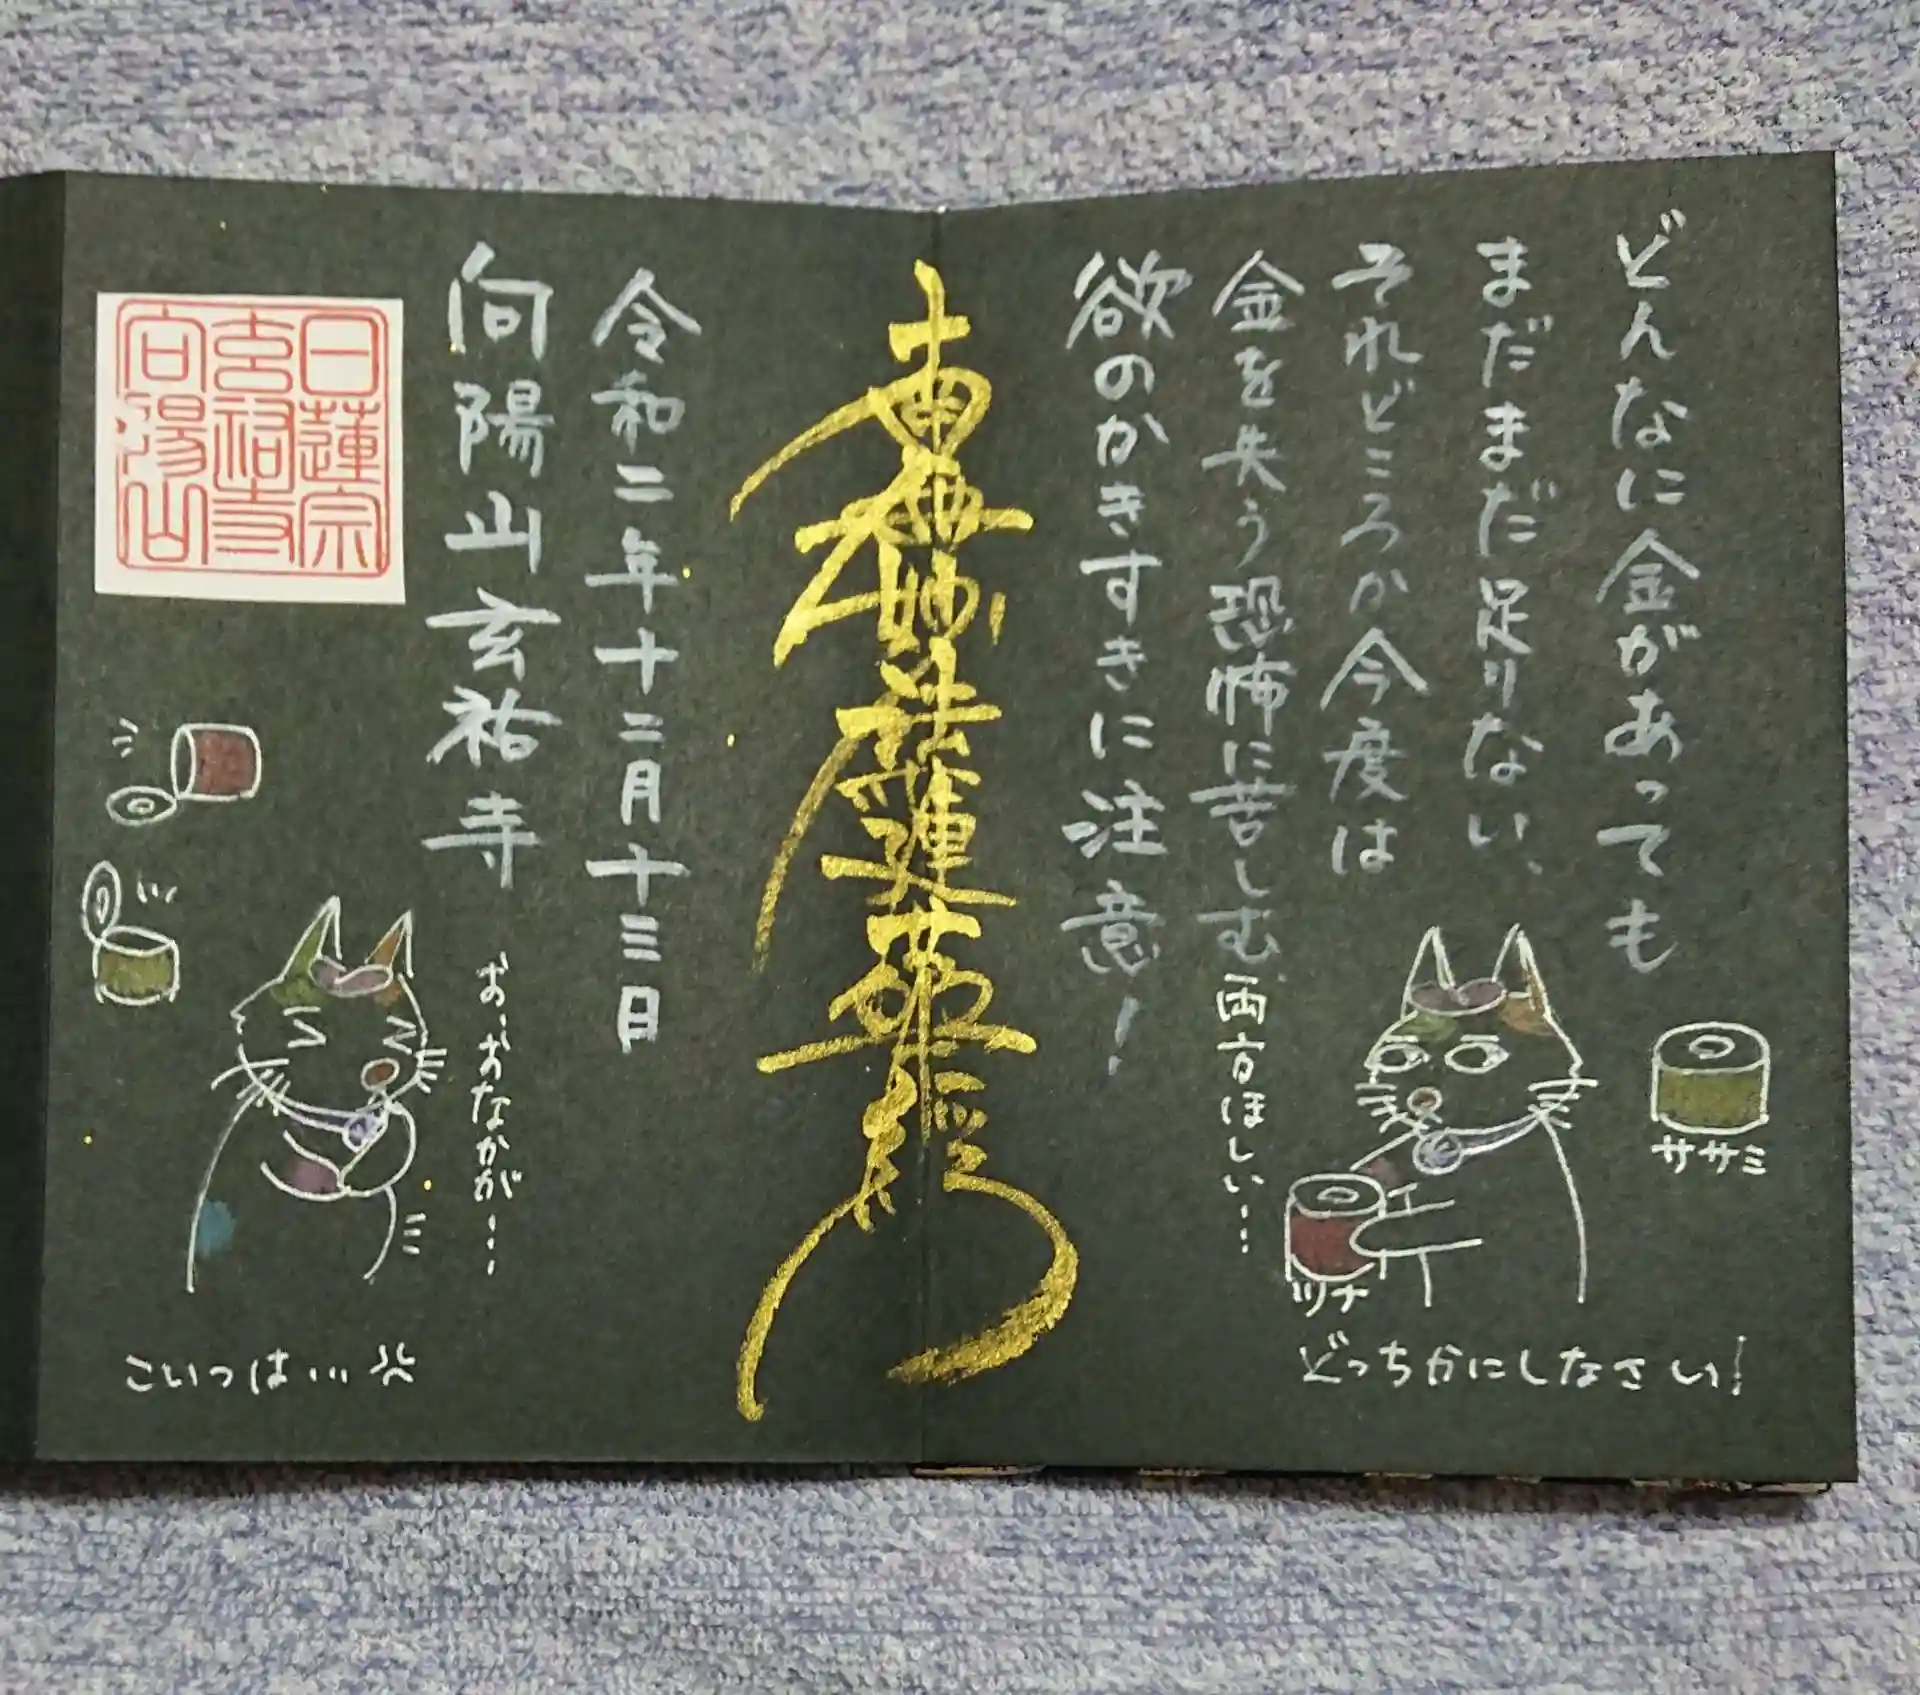 どんなに金があっても
まだまだ足りない、
それどころか今度は
金を失う恐怖に苦しむ。
欲のかきすきに注意！
両方ほしい…
ササミ
ツナ
どっちかにしなさい！
南無妙法蓮華経
令和二年十二月十三日
向陽山玄祐寺
日蓮宗
玄祐寺
向陽山
お、おなかが…
こいつは…